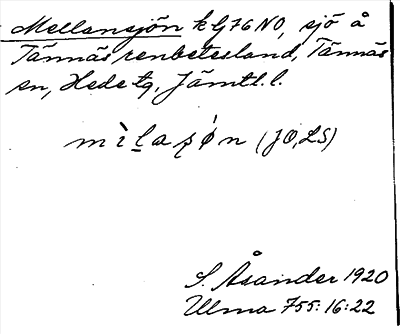 Mellansjön k G76 NO, sjö å
Tännäs renbetesland, Tännäs
sn, Hede tg, Jämtl. l.
(JÖ, LS)
S. Åsander 1920
Ulma 755:16:22